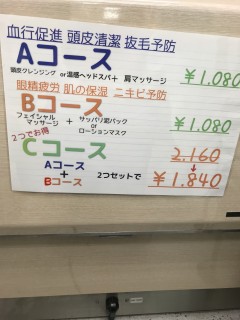 血行促進 頭皮清潔 抜毛予防
Aコース
頭皮クレンジング or 温感ヘッドスパ + 肩マッサージ
¥1.080
眼精疲労 肌の保湿 ニキビ予防
Bコース
フェイシャルマッサージ + サッパリ泥パック or ローションマスク
¥1.080
2つでお得
Cコース
2.160
↓
Aコース + Bコース 2つセットで ¥1.840